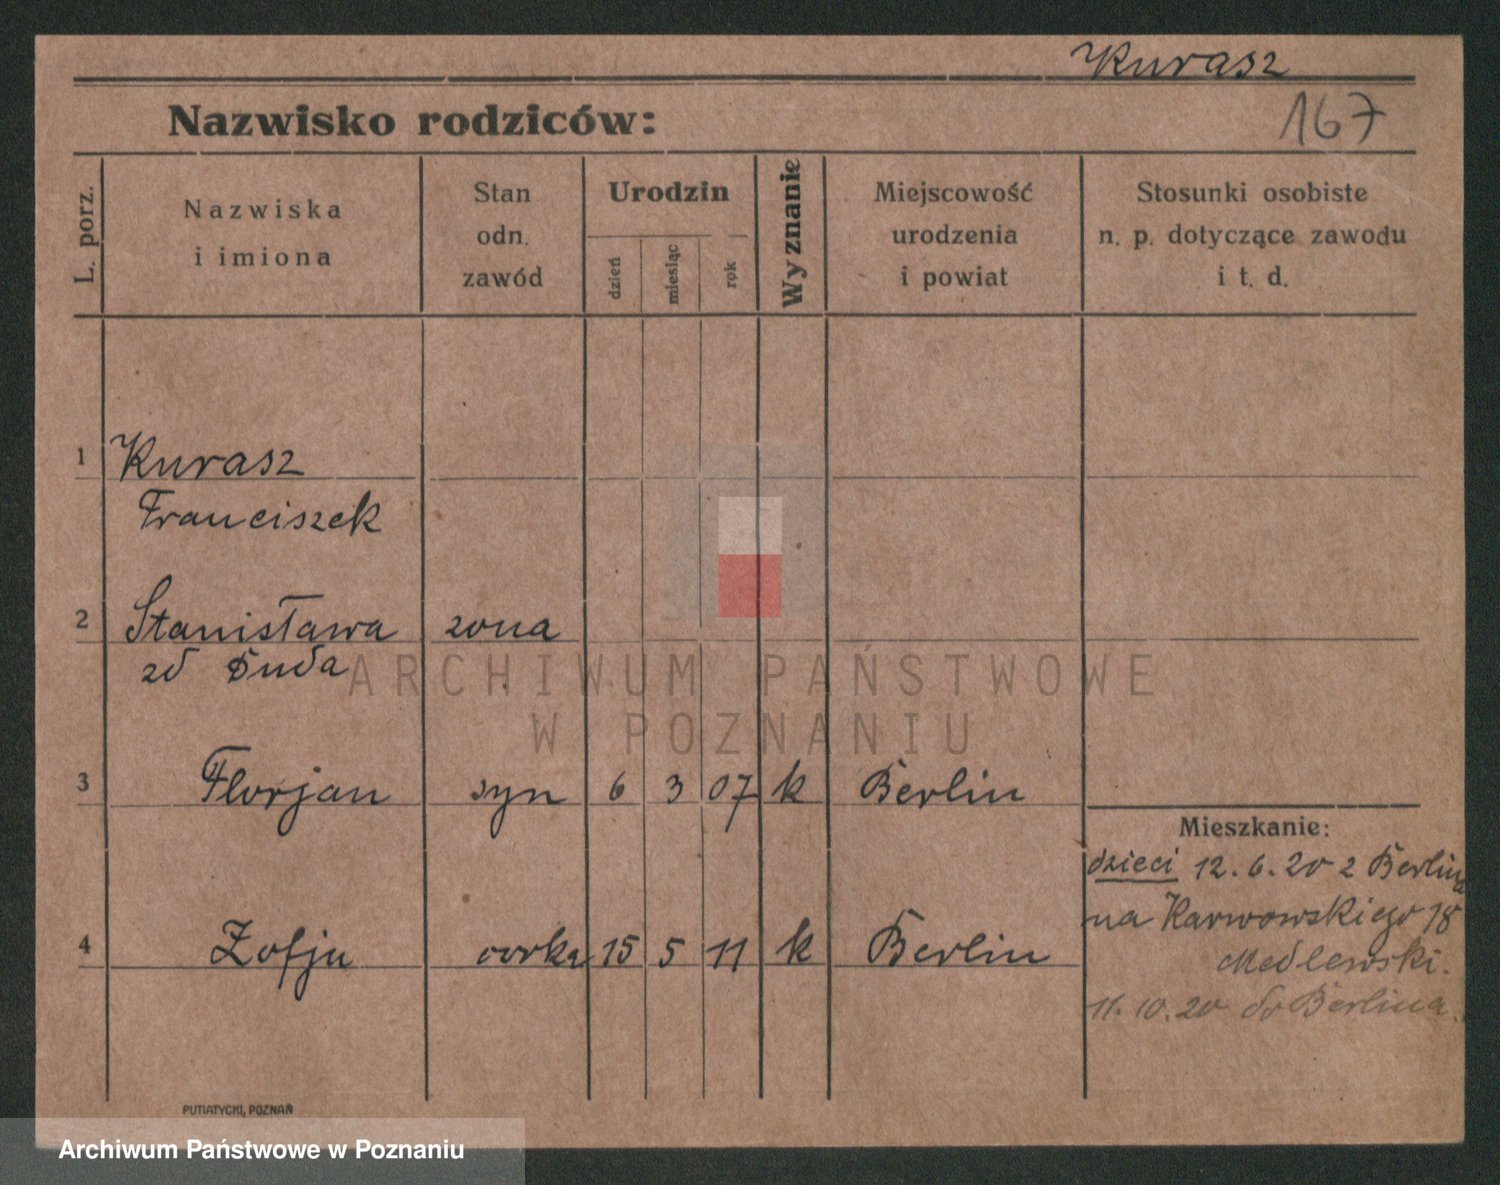 Kurasz
Nazwisko rodziców:
167
L. porz.
Nazwiska
i imiona
Stan
odn.
zawód
Urodzin
dzień
miesiąc
rok
Wyznanie
Miejscowość
urodzenia
i powiat
Stosunki osobiste
n. p. dotyczące zawodu
i t. d.
1 Kurasz
Franciszek
2 Stanisława zona
zd Duda
3 Florjan syn 6 3 07 k Berlin
4 Zofja corka 15 5 11 k Berlin
Mieszkanie:
dzieci 12.6.20 z Berlina
na Karwowskiego 18
Medlewski.
11.10.20 do Berlina.
ARCHIWUM PAŃSTWOWE
W POZNANIU
PUTIATYCKI, POZNAŃ
Archiwum Państwowe w Poznaniu